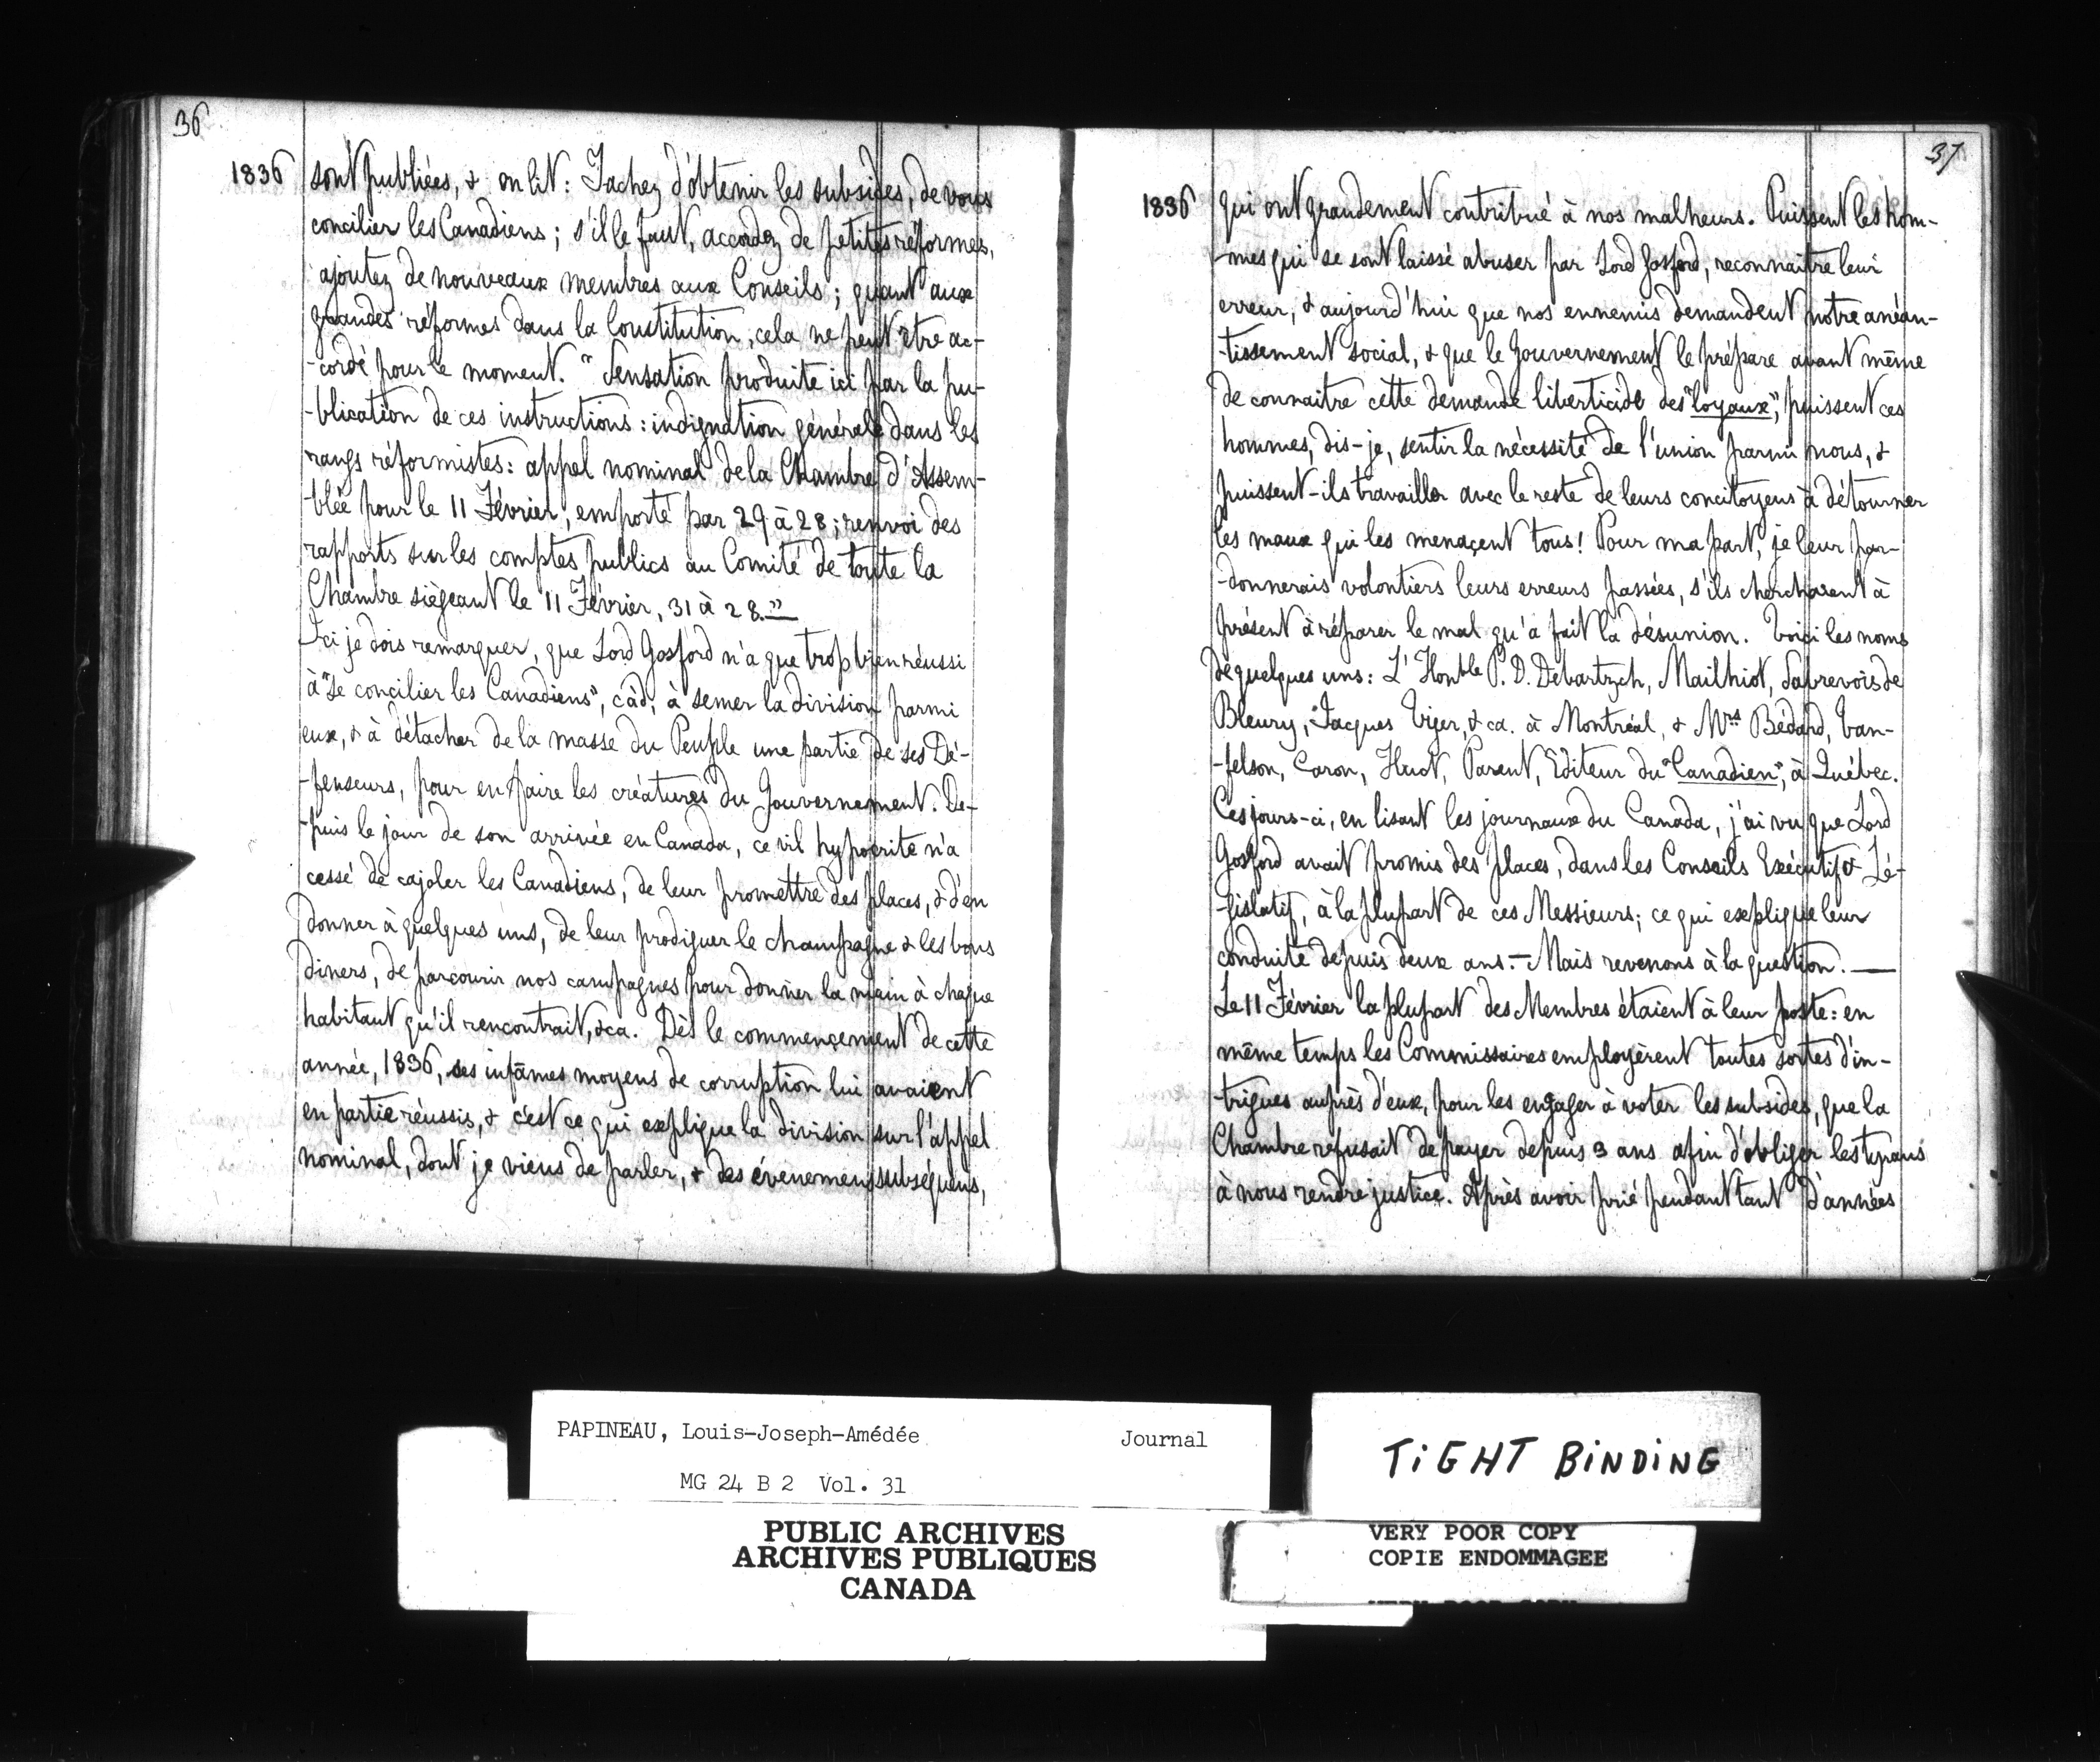 36
1836 sont publiées, & on lit: Tachez d'obtenir les subsides, de vous
concilier les Canadiens; s'il le faut, accordez de petites réformes,
ajoutez de nouveaux membres aux Conseils; quant aux
grandes réformes dans la Constitution, cela ne peut être ac-
-cordé pour le moment. " Sensation produite ici par la pu-
-blication de ces instructions: indignation générale dans les
rangs réformistes: appel nominal de la Chambre d'Assem-
-blée pour le 11 Février, emporté par 29 à 28; renvoi des
rapports sur les comptes publics au Comité de toute la
Chambre siègeant le 11 Février, 31 à 28."—
Ici je dois remarquer, que Lord Gosford n'a que trop bien réussi
à "se concilier les Canadiens", càd, à semer la division parmi
eux, & à détacher de la masse du Peuple une partie de ses Dé-
-fenseurs, pour en faire les créatures du Gouvernement. De-
-puis le jour de son arrivée en Canada, ce vil hypocrite n'a
cessé de cajoler les Canadiens, de leur promettre des places, & d'en
donner à quelques uns, de leur prodiguer le champagne & les bons
diners, de parcourir nos campagnes pour donner la main à chaque
habitant qu'il rencontrait, &ca. Dès le commençement de cette
année, 1836, ses infâmes moyens de corruption lui avaient
en partie réussis, & c'est ce qui explique la division sur l'appel
nominal, dont je viens de parler, & des évènemens subséquens,
37
1836 qui ont grandement contribué à nos malheurs. Puissent les hom-
-mes qui se sont laissé abuser par Lord Gosford, reconnaitre leur
erreur, & aujourd'hui que nos ennemis demandent notre anéan-
-tissement social, & que le Gouvernement le prépare avant même
de connaitre cette demande liberticide des "loyaux", puissent ces
hommes, dis-je, sentir la nécessité de l'union parmi nous, &
puissent-ils travailler avec le reste de leurs concitoyens à détourner
les maux qui les menaçent tous! Pour ma part, je leur par-
-donnerais volontiers leurs erreurs passées, s'ils cherchaient à
présent à réparer le mal qu'a fait la désunion. Voici les noms
de quelques uns: L'Honble P. D. Debartzch, Mailhiot, Sabrevois de
Bleury, Jacques Viger, & ca. à Montréal, & Mrs Bédard, Van-
-felson, Caron, Huot, Parent, Editeur du "Canadien", à Québec.
Ces jours-ci, en lisant les journaux du Canada, j'ai vu que Lord
Gosford avait promis des places, dans les Conseils Exécutif & Lé-
-gislatif, à la plupart de ces Messieurs; ce qui explique leur
conduite depuis deux ans.— Mais revenons à la question.—
Le 11 Février la plupart des Membres étaient à leur poste: en
même temps les Commissaires employèrent toutes sortes d'in-
-trigues auprès d'eux, pour les engager à voter les subsides, que la
Chambre refusait de payer depuis 3 ans afin d'obliger les tyrans
à nous rendre justice. Après avoir prié pendant tant d'années
PAPINEAU, Louis-Joseph-Amédée Journal
MG 24 B 2 Vol. 31
PUBLIC ARCHIVES
ARCHIVES PUBLIQUES
CANADA
TiGHT BiNDiNG
VERY POOR COPY
COPIE ENDOMMAGEE